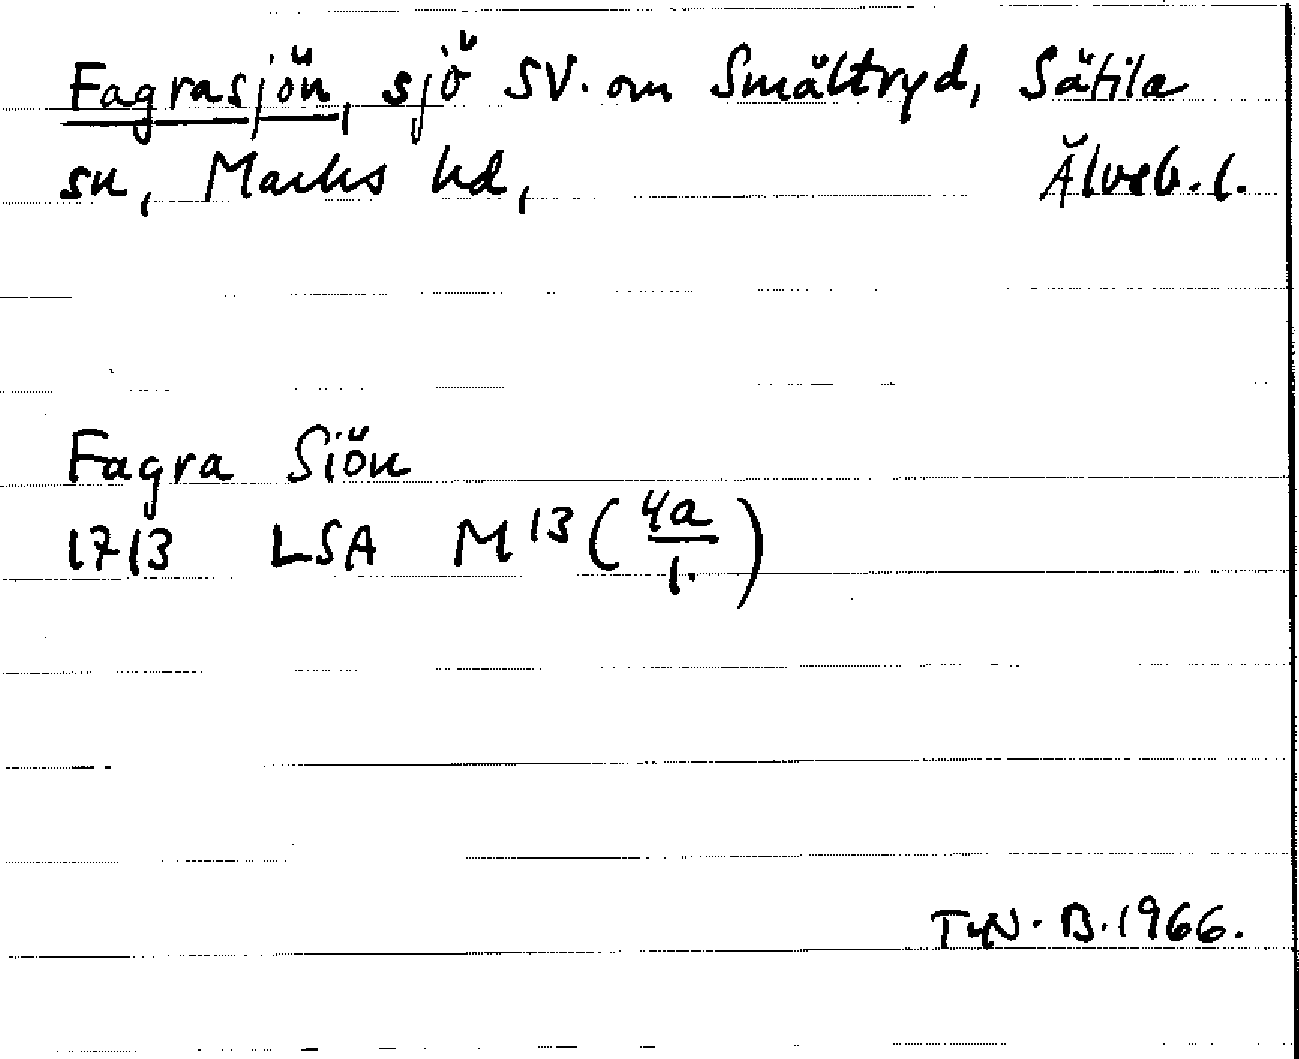 Fagrasjön, sjö SV. om Smältryd, Sätila
sn, Marks hd, Älvsb. l.
Fagra Siön
1713 LSA M 13 (4a/1.)
B. 1966.